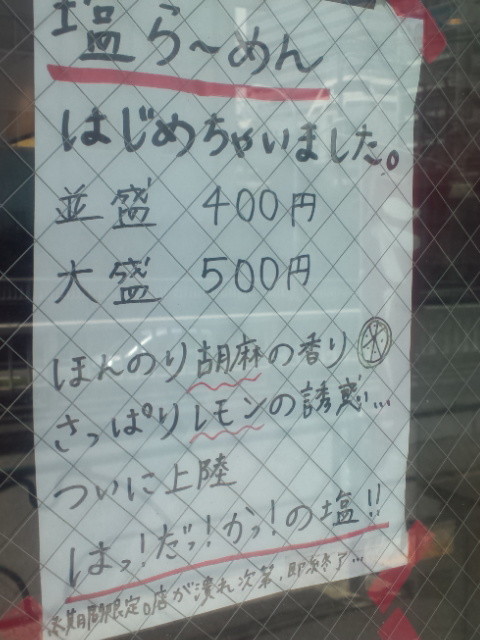 塩ら～めん
はじめちゃいました。
並盛 400円
大盛 500円
ほんのり胡麻の香り
さっぱりレモンの誘惑…
ついに上陸
はっ!だっ!かっ!の塩!!
期間限定。店が潰れ次第、即終了…